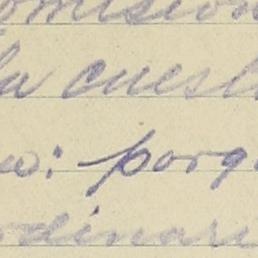 omision
la cuest
w: porq
dinari